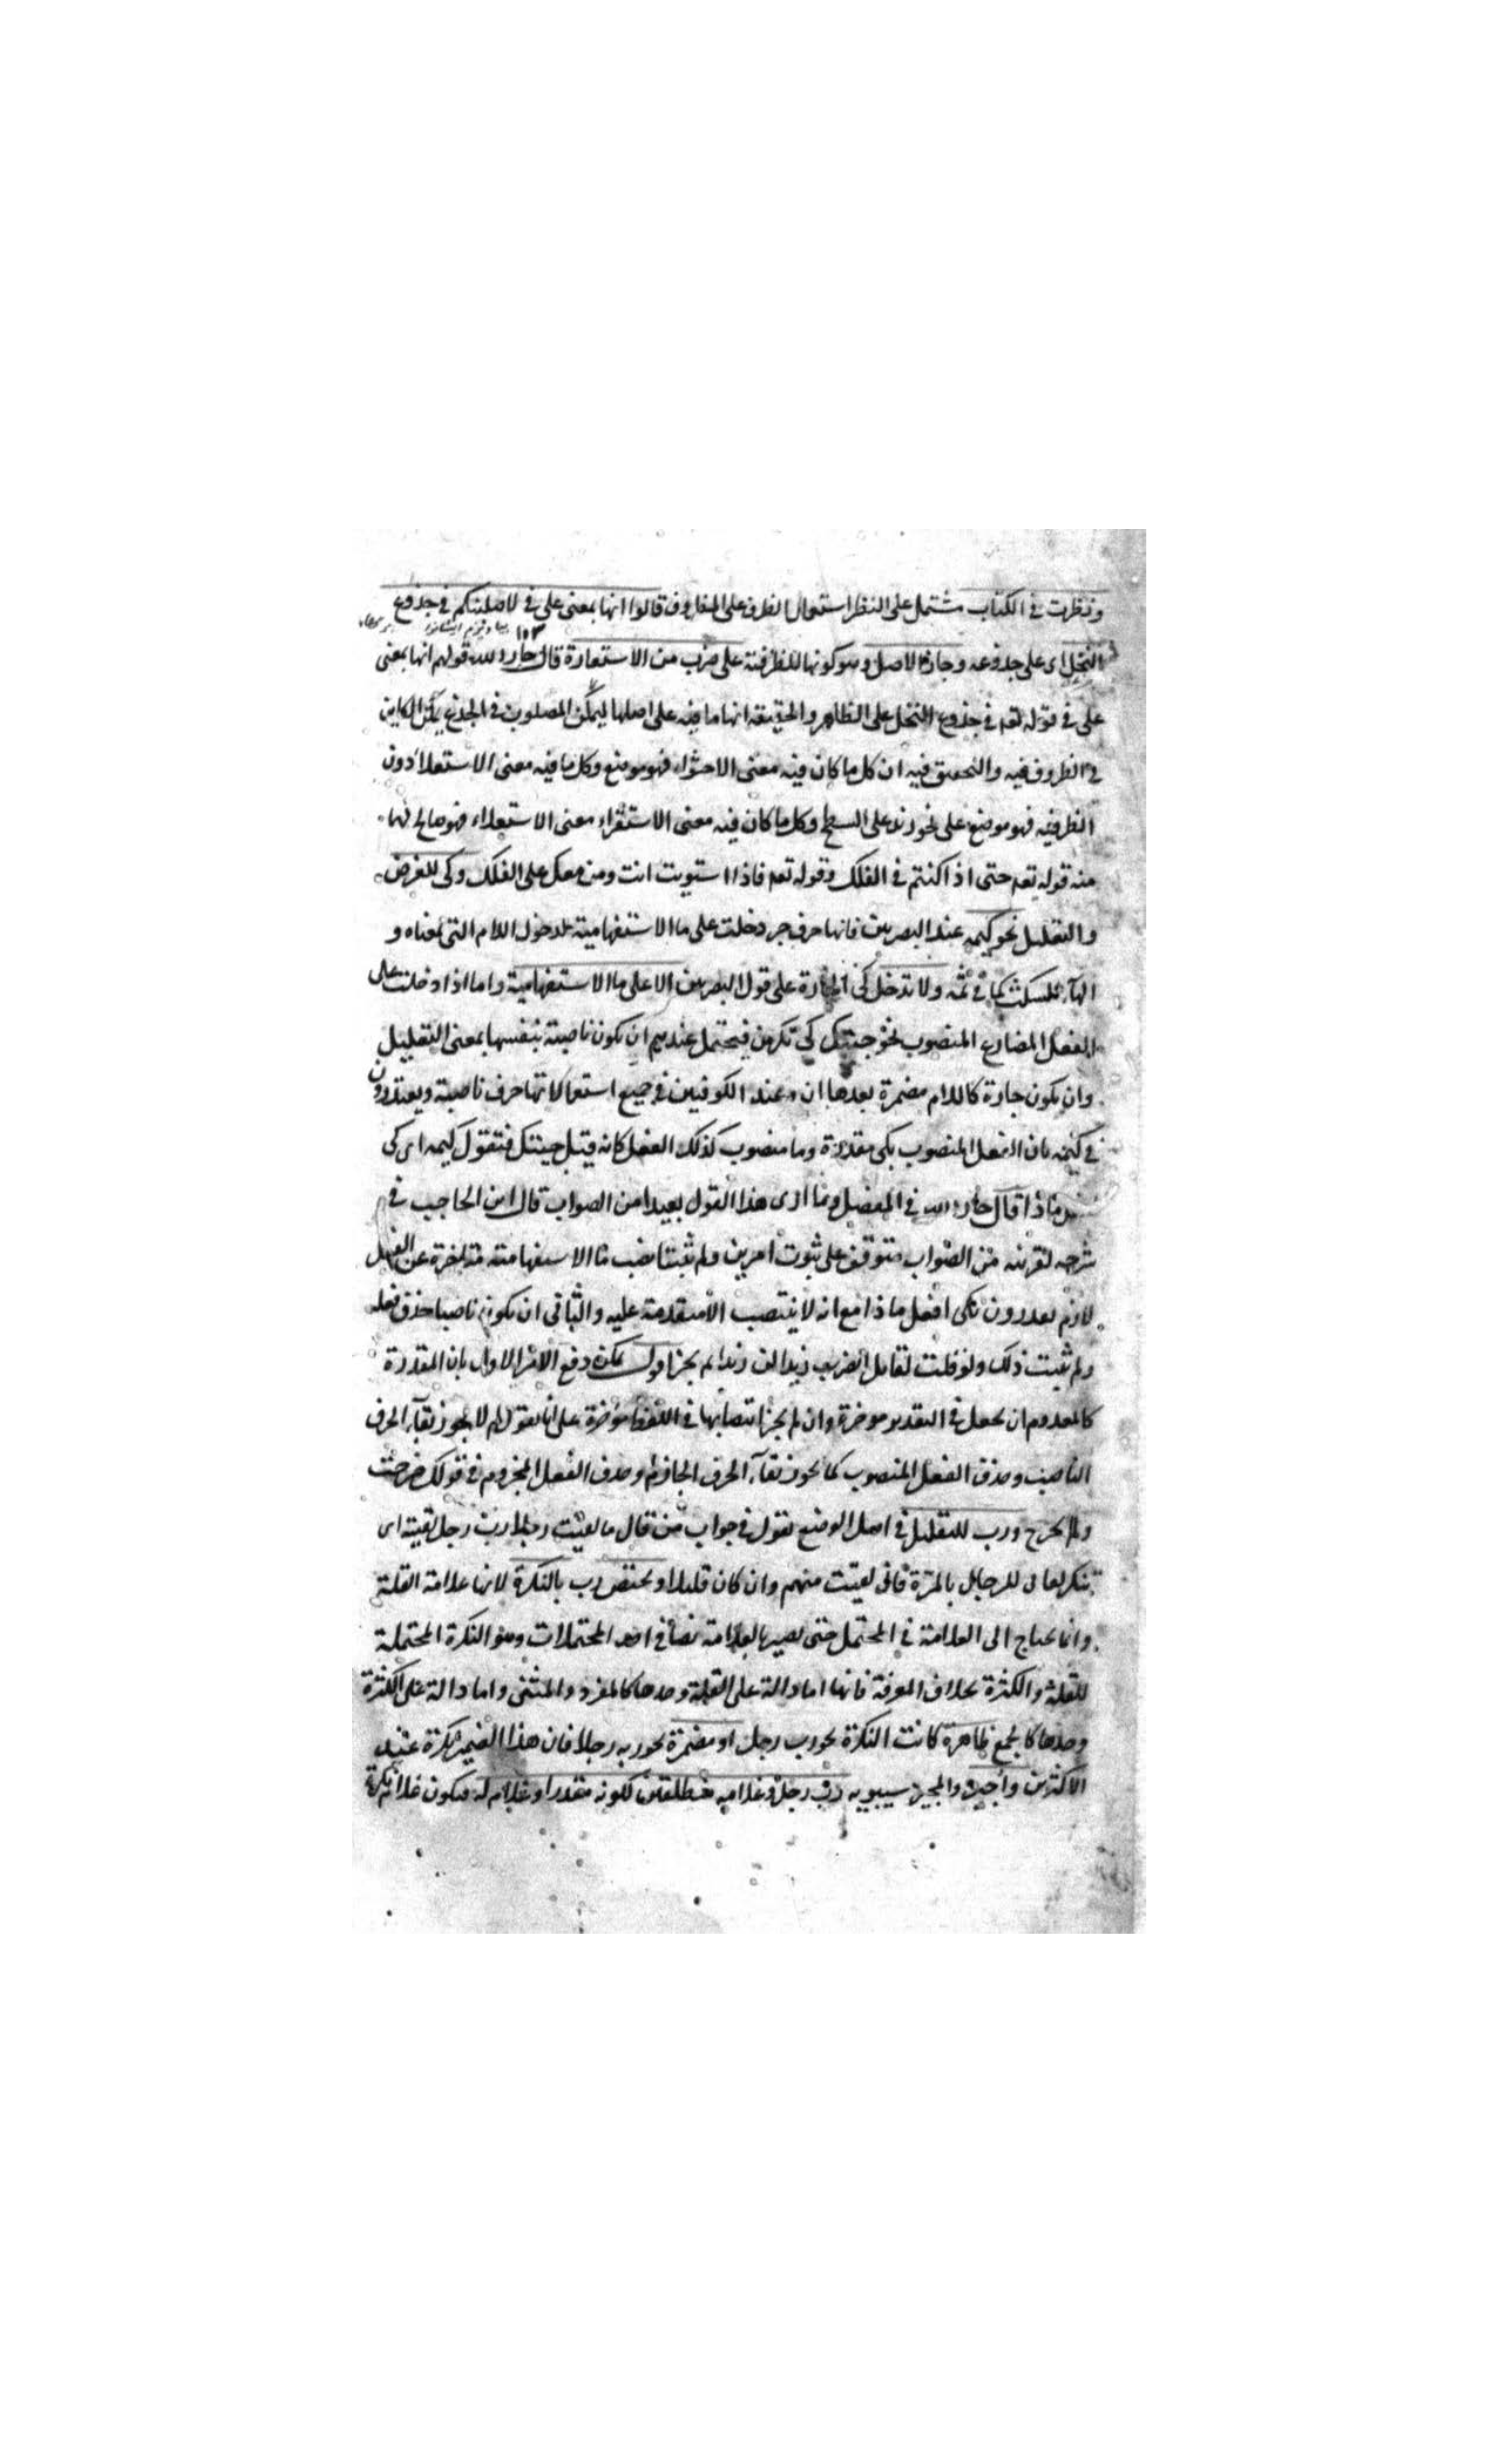 ونظرت في الكتاب مشتمل على النظر استعمال الظرف على المظروف قالوا انها بمعنى على في لاصلبنكم في جذوع
النخل اى على جذوعه وجارة الاصل وهو كونها للظرفية على ضرب من الاستعارة قال جار الله قولهم انها بمعنى
على في قوله تعه في جذوع النخل على الظاهر والحقيقة انها ما فيه على اصلها ليمكن المصلوب في الجذع يمكن الكاين
في الظروف فيه والتحقيق فيه ان كل ما كان فيه معنى الاحتواء فهو موضع وكل ما فيه معنى الاستعلاء دون
الظرفيه فهو موضع على نحو زيد على السطح وكل ما كان فيه معنى الاستقراء معنى الاستعلاء فهو صالح لهما
منه قوله تعه حتى اذا كنتم في الفلك وقوله تعه فاذا استويت انت ومن معك على الفلك وكى للغرض
والتعليل نحو كيمه عند البصريين فانها حرف جر دخلت على ما الاستفهامية لدخول اللام التي بمعناه و
الهآء للسكت كما في ثمه ولا تدخل كى الجارة على قول البصريين الا على ما الاستفهامية واما اذا دخلت على
الفعل المضارع المنصوب نحو جئتك كى تكرمن فيحتمل عندهم ان يكون ناصبة بنفسها بمعنى التعليل
وان يكون جارة كاللام مضمرة بعدها ان وعند الكوفيين في جميع استعمالاتها حرف ناصبة ويعتذرون
في كيمه بان الفعل المنصوب بكى مقدرة وما منصوب كذلك الفعل كانه قيل جئتك فتقول كيمه اى كى
ماذا قال جار الله في المفصل وما ارى هذا القول بعيدا من الصواب قال ابن الحاجب في
شرحه لقربنه من الصواب متوقف على ثبوت امرين ولم يثبتا نصب ما الاستفهامية متاخرة عن الفعل
لازم يقدرون كى افعل ماذا مع انه لا ينتصب الا متقدمة عليه والثاني ان يكون ناصبا حذف فعله
ولم يثبت ذلك ولو قلت لقايل اتضرب زيدا لن زيدا لم يجز اقول يمكن دفع الامر الاول بان المقدرة
كالمعدوم ان يجعل في التقدير موخرة وان لم يجز انتصابها في اللفظ موخرة على انا نقول لم لا يجوز بقآء الحرف
الناصب وحذف الفعل المنصوب كما يجوز بقآء الحرف الجازم وحذف الفعل المجزوم في قولك خرجت
ولم يخرج ورب للتقليل في اصل الوضع تقول في جواب من قال ما لقيت رجلا رب رجل لقيته اى
لا تنكر لقاى للرجال بالمرة فانى لقيت منهم وان كان قليلا ويختص رب بالنكرة لانها علامة القلة
وانما يحتاج الى العلامة في المحتمل حتى يصير بالعلامة نصا في احد المحتملات وهو النكرة المحتملة
للقلة والكثرة بخلاف المعرفة فانها اما دالة على القلة وحدها كالمفرد والمثنى واما دالة على الكثرة
وحدها كالجمع ظاهرة كانت النكرة نحو رب رجل او مضمرة نحو ربه رجلا فان هذا الضمير نكرة عند
الاكثرين واجيز والمجيز سيبويه رب رجل وغلامه منطلقين لكونه مقدرا وغلام له فيكون غلام نكرة